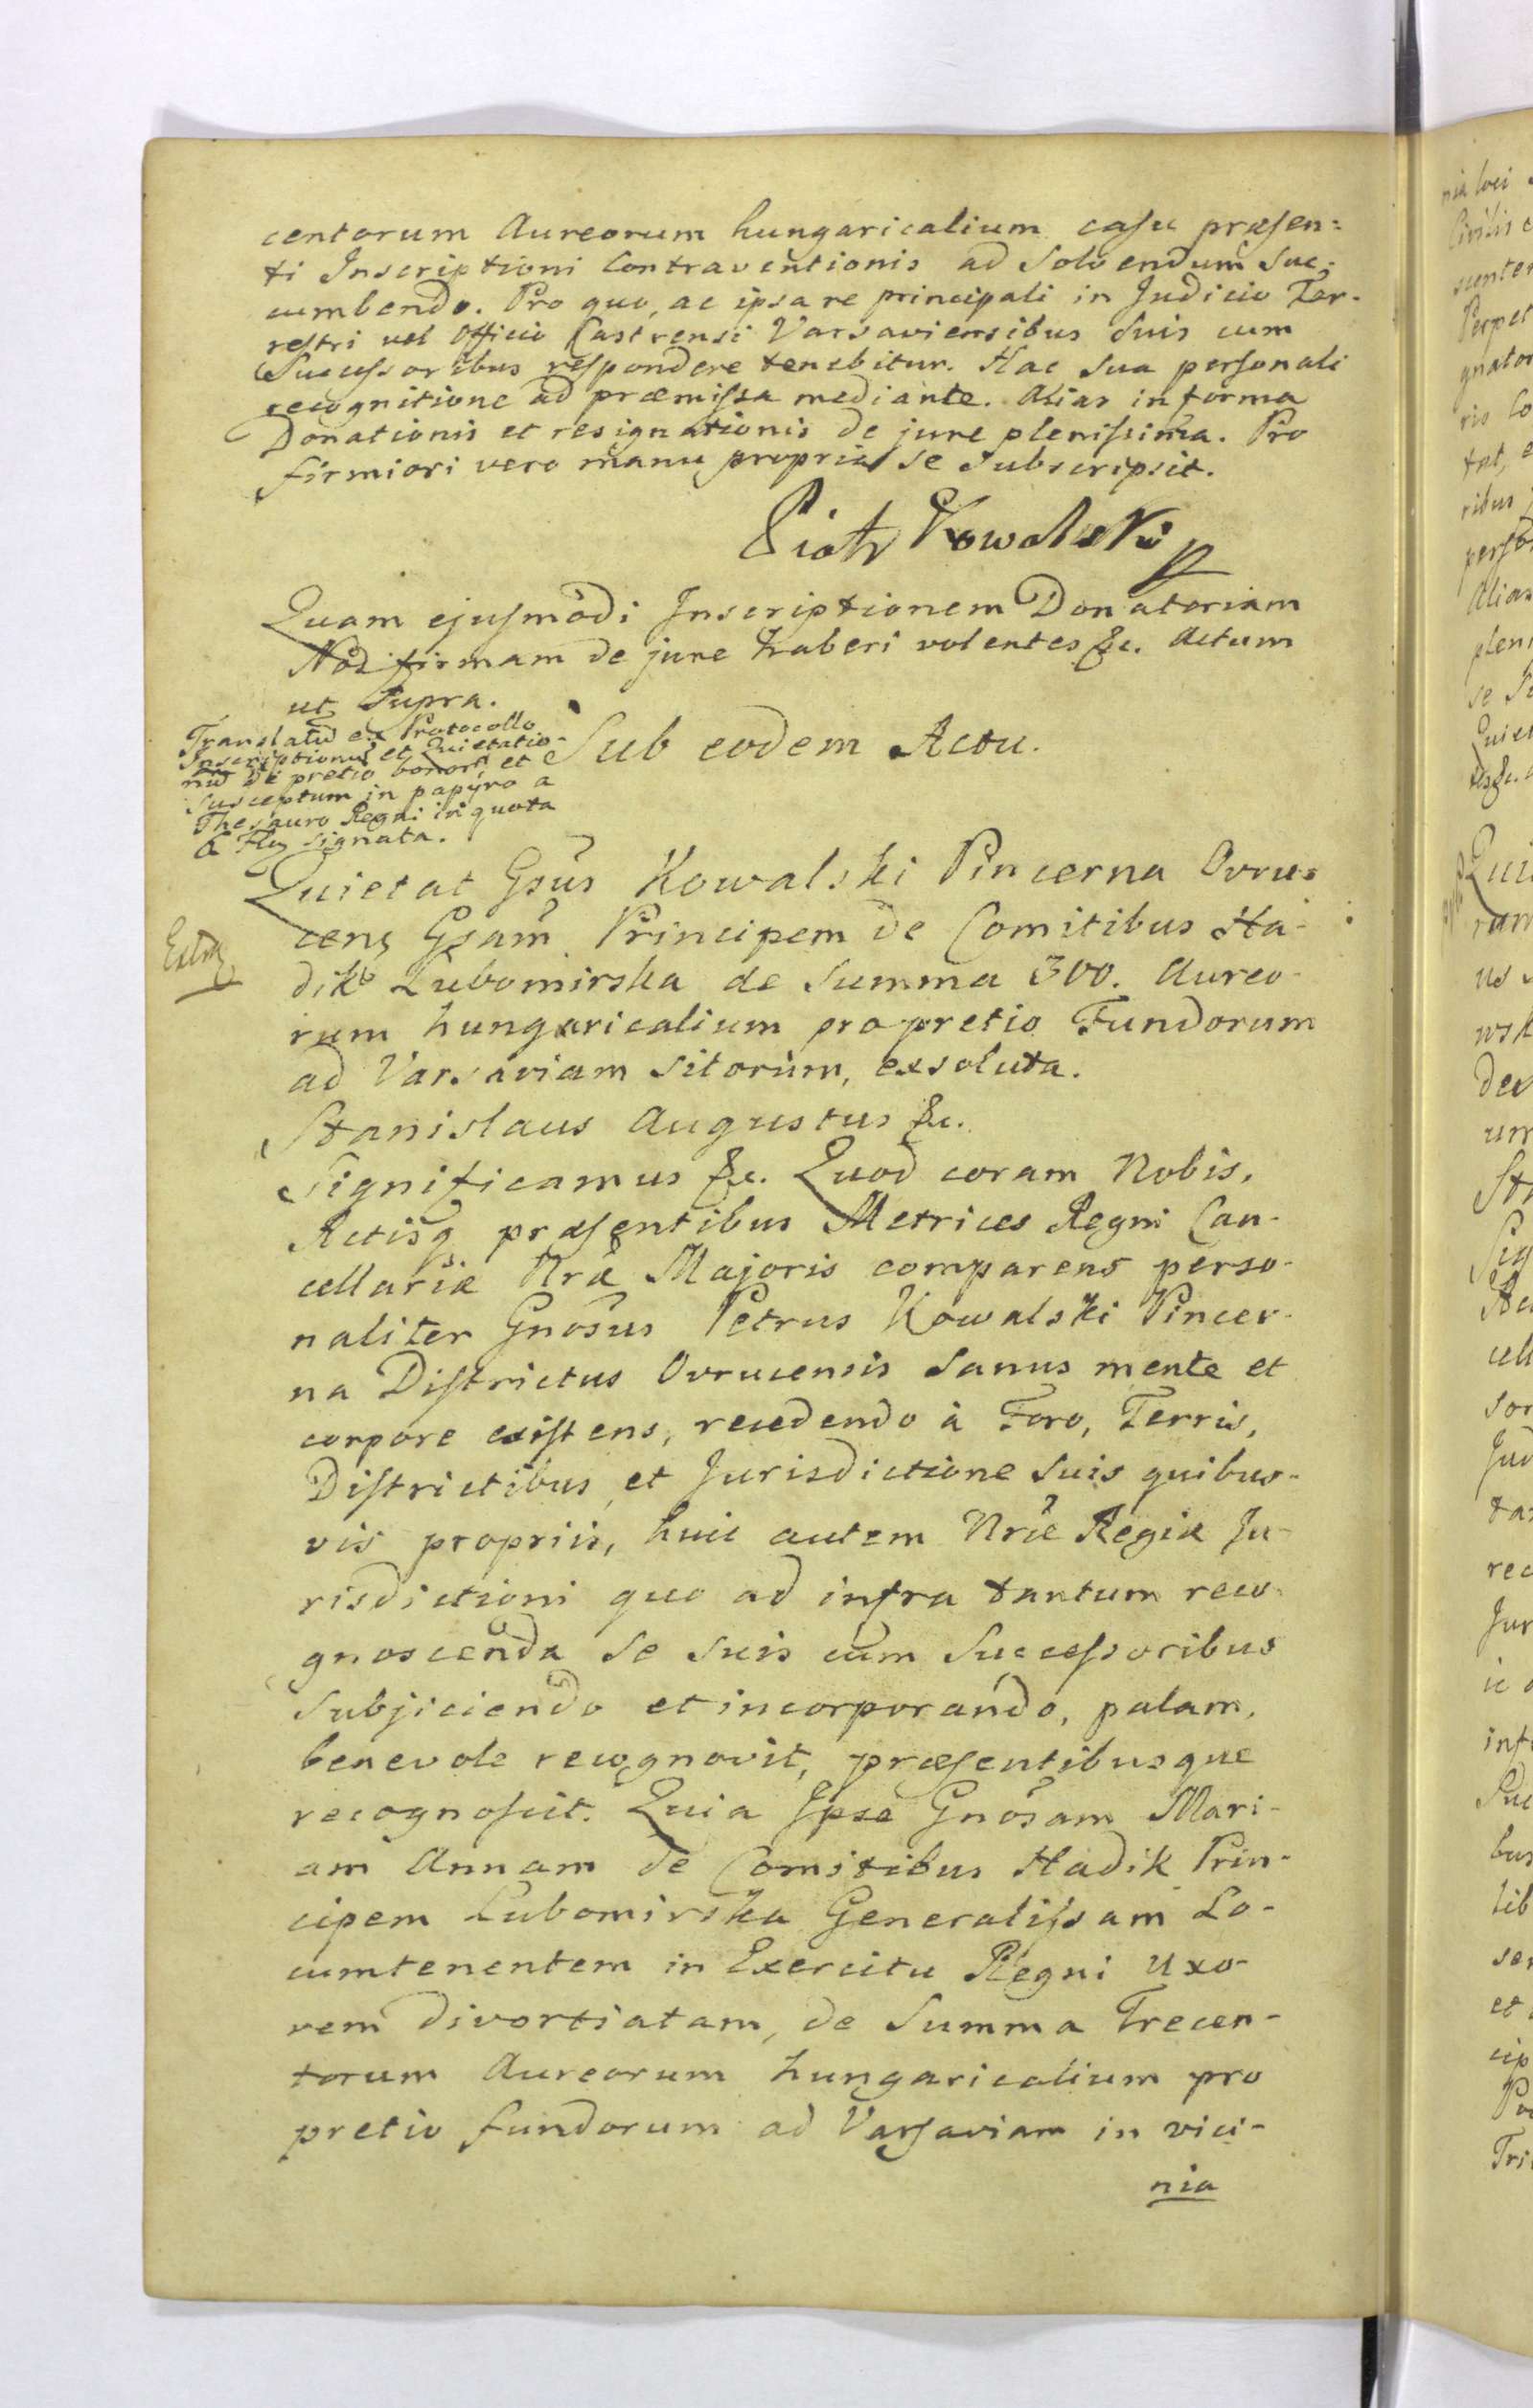 centorum Aureorum hungaricalium casu præsen=
ti Inscriptioni Contraventionis ad Solvendum Suc=
cumbendo. Pro quo, ac ipsa re principali in Judicio Ter-
restri vel Officio Castrensi Varsaviensibus Suis cum
Successoribus respondere tenebitur. Hac Sua personali
recognitione ad præmissa mediante. Alias in forma
Donationis et resignationis de jure plenissima. Pro
firmiori vero manu propria se Subscripsit.
Piotr Kowalski
Quam ejusmodi Inscriptionem Donatoriam
Nos firmam de jure haberi volentes &c. Actum
ut Supra.
Translatū ex Protocollo
Inscriptionū et Quietatio-
nū de pretio bonorū et
Susceptum in papyro a
Thesauro Regni in quota
signata.
Sub eodem Actu.
Quietat Gsūs Kowalski Pincerna Ovru=
cens Gsam̄ Principem de Comitibus Ha-
dik Lubomirska de Summa 300. Aureo-
rum hungaricalium pro pretio Fundorum
ad Varsaviam Sitorum, exsoluta.
Stanislaus Augustus &c.
Significamus &c. Quod coram Nobis,
Actisq præsentibus Metrices Regni Can-
cellariæ Nræ Majoris comparens perso-
naliter Gnosus Petrus Kowalski Pincer-
na Districtus Ovrucensis Sanus mente et
corpore existens, recedendo à Foro, Terris,
Districtibus et Jurisdictione Suis quibus-
vis propriis, huic autem Nræ Regiæ Ju-
risdictioni quo ad infra tantum reco-
gnoscenda Se Suis cum Successoribus
Subjiciendo et incorporando, palam,
benevole recognovit, præsentibusque
recognoscit. Quia Ipse Gnosam Mari-
am Annam de Comitibus Hadik Prin-
cipem Lubomirska Generalissam Lo-
cumtenentem in Exercitu Regni Uxo-
rem divortiatam, de Summa Trecen-
torum Aureorum hungaricalium pro
pretio fundorum ad Varsaviam in vici-
nia